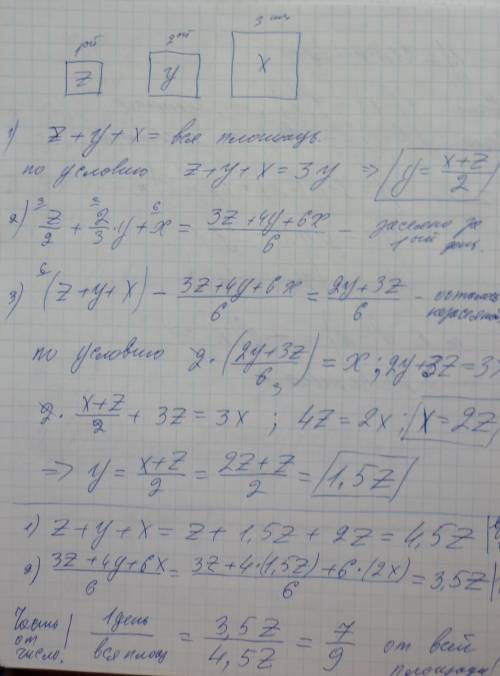 1ый 2ой 3 ий
z y x
1) z + y + x = вся площадь.
по условию z + y + x = 3y ⇒ y = (x+z)/2
2) z/2 + 2/3 · y + x = (3z + 4y + 6x)/6 – засеяно за 1ый день.
3) (z + y + x) − (3z + 4y + 6x)/6 = (2y + 3z)/6 – осталось незасеянной
по условию 2 · ((2y + 3z)/6) = x ; 2y + 3z = 3x
2 · (x+z)/2 + 3z = 3x ; 4z = 2x ; x = 2z
⇒ y = (x+z)/2 = (2z+z)/2 = 1,5z
1) z + y + x = z + 1,5z + 2z = 4,5z
2) (3z + 4y + 6x)/6 = (3z + 4·(1,5z) + 6·(2x))/6 = 3,5z
Часть от числа, 1 день/вся площ = 3,5z/4,5z = 7/9 от всей площади!